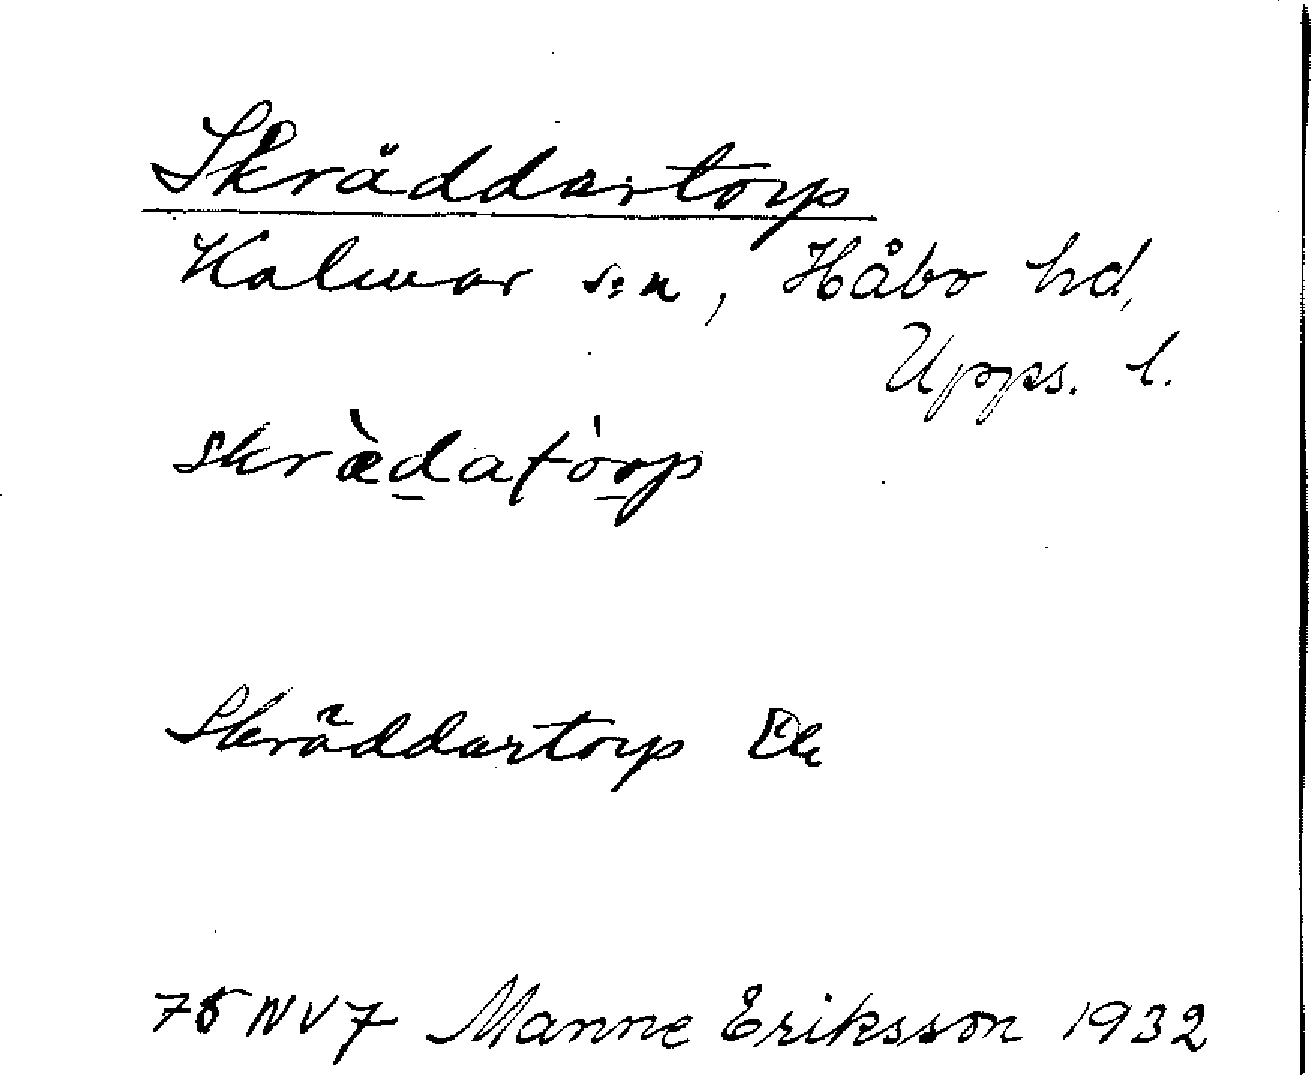 Skräddartorp
Kalmar s:n, Håbo hd,
Upps. l.
skræ̀datórp
Skräddartorp Ek
75 NV 7 Manne Eriksson 1932